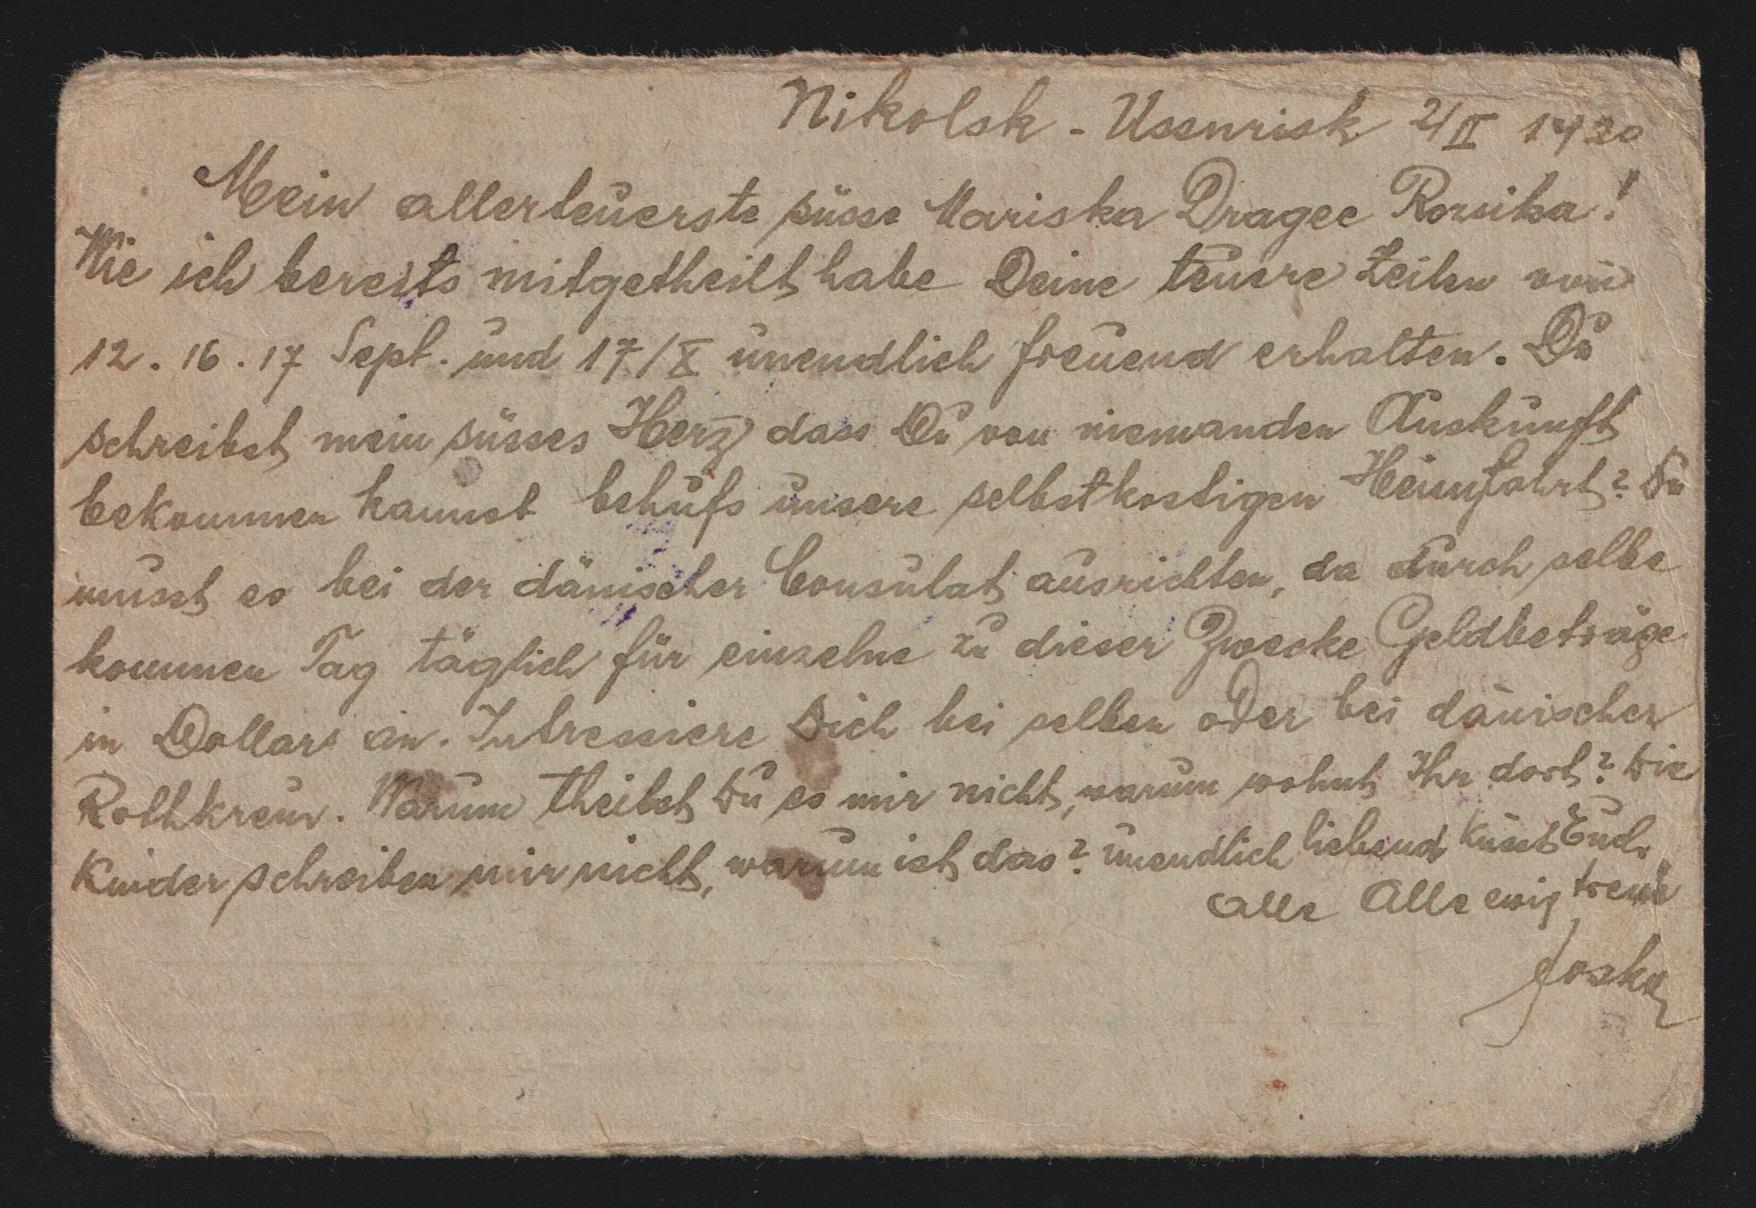 Nikolsk - Ussurisk 2/II 1920
Mein allerteuerste süsse Mariska Dragee Rozsika!
Wie ich bereits mitgetheilt habe Deine teuere Zeilen von
12. 16. 17 Sept. und 17/X unendlich freuend erhalten. Du
schreibst mein süsses Herz dass Du von niemanden Auskunft
bekommen kannst behufs unsere selbstkostigen Heimfahrt? Du
musst es bei der dänischer Consulat ausrichten, da durch selbe
kommen Tag täglich für einzelne zu dieser Zwecke Geldbeträge
in Dollars an. Intressiere Dich bei selben oder bei dänischer
Rothkreuz. Warum theilst Du es mir nicht, warum wohnt Ihr dort? Die
Kinder schreiben mir nicht, warum ist das? unendlich liebend küsst Euch
alle Alle ewig treue
Joska